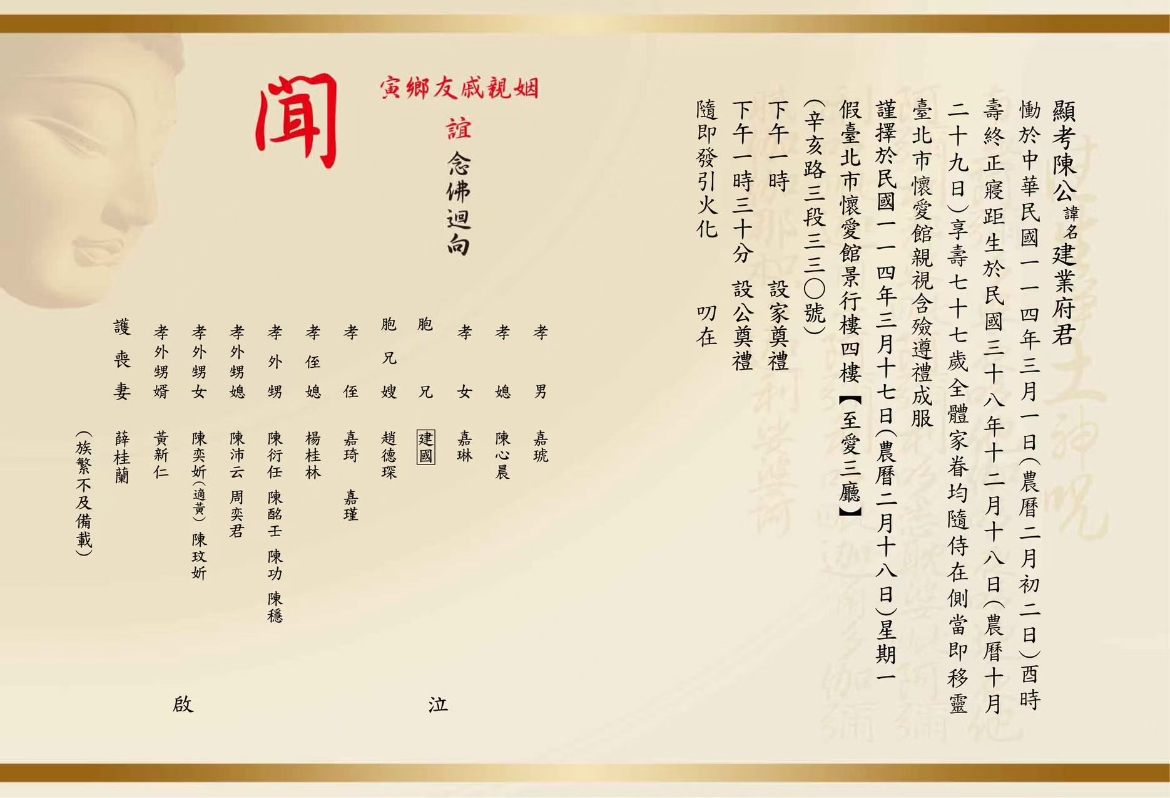 顯考陳公諱名建業府君
慟於中華民國一一四年三月一日(農曆二月初二日)酉時
壽終正寢距生於民國三十八年十二月十八日(農曆十月
二十九日)享壽七十七歲全體家眷均隨侍在側當即移靈
臺北市懷愛館親視含殮遵禮成服
謹擇於民國一一四年三月十七日(農曆二月十八日)星期一
假臺北市懷愛館景行樓四樓【至愛三廳】
(辛亥路三段三三〇號)
下午一時 設家奠禮
下午一時三十分 設公奠禮
隨即發引火化 叨在
姻親戚友鄉寅
誼 念佛迴向
聞
孝男 嘉琥
孝媳 陳心晨
孝女 嘉琳
胞兄 建國
胞兄嫂 趙德琛
孝侄 嘉琦 嘉瑾
孝侄媳 楊桂林
孝外甥 陳衍任 陳酩壬 陳功 陳穩
孝外甥媳 陳沛云 周奕君
孝外甥女 陳奕妡(適黃) 陳玟妡
孝外甥婿 黃新仁
護喪妻 薛桂蘭
(族繁不及備載)
泣
啟